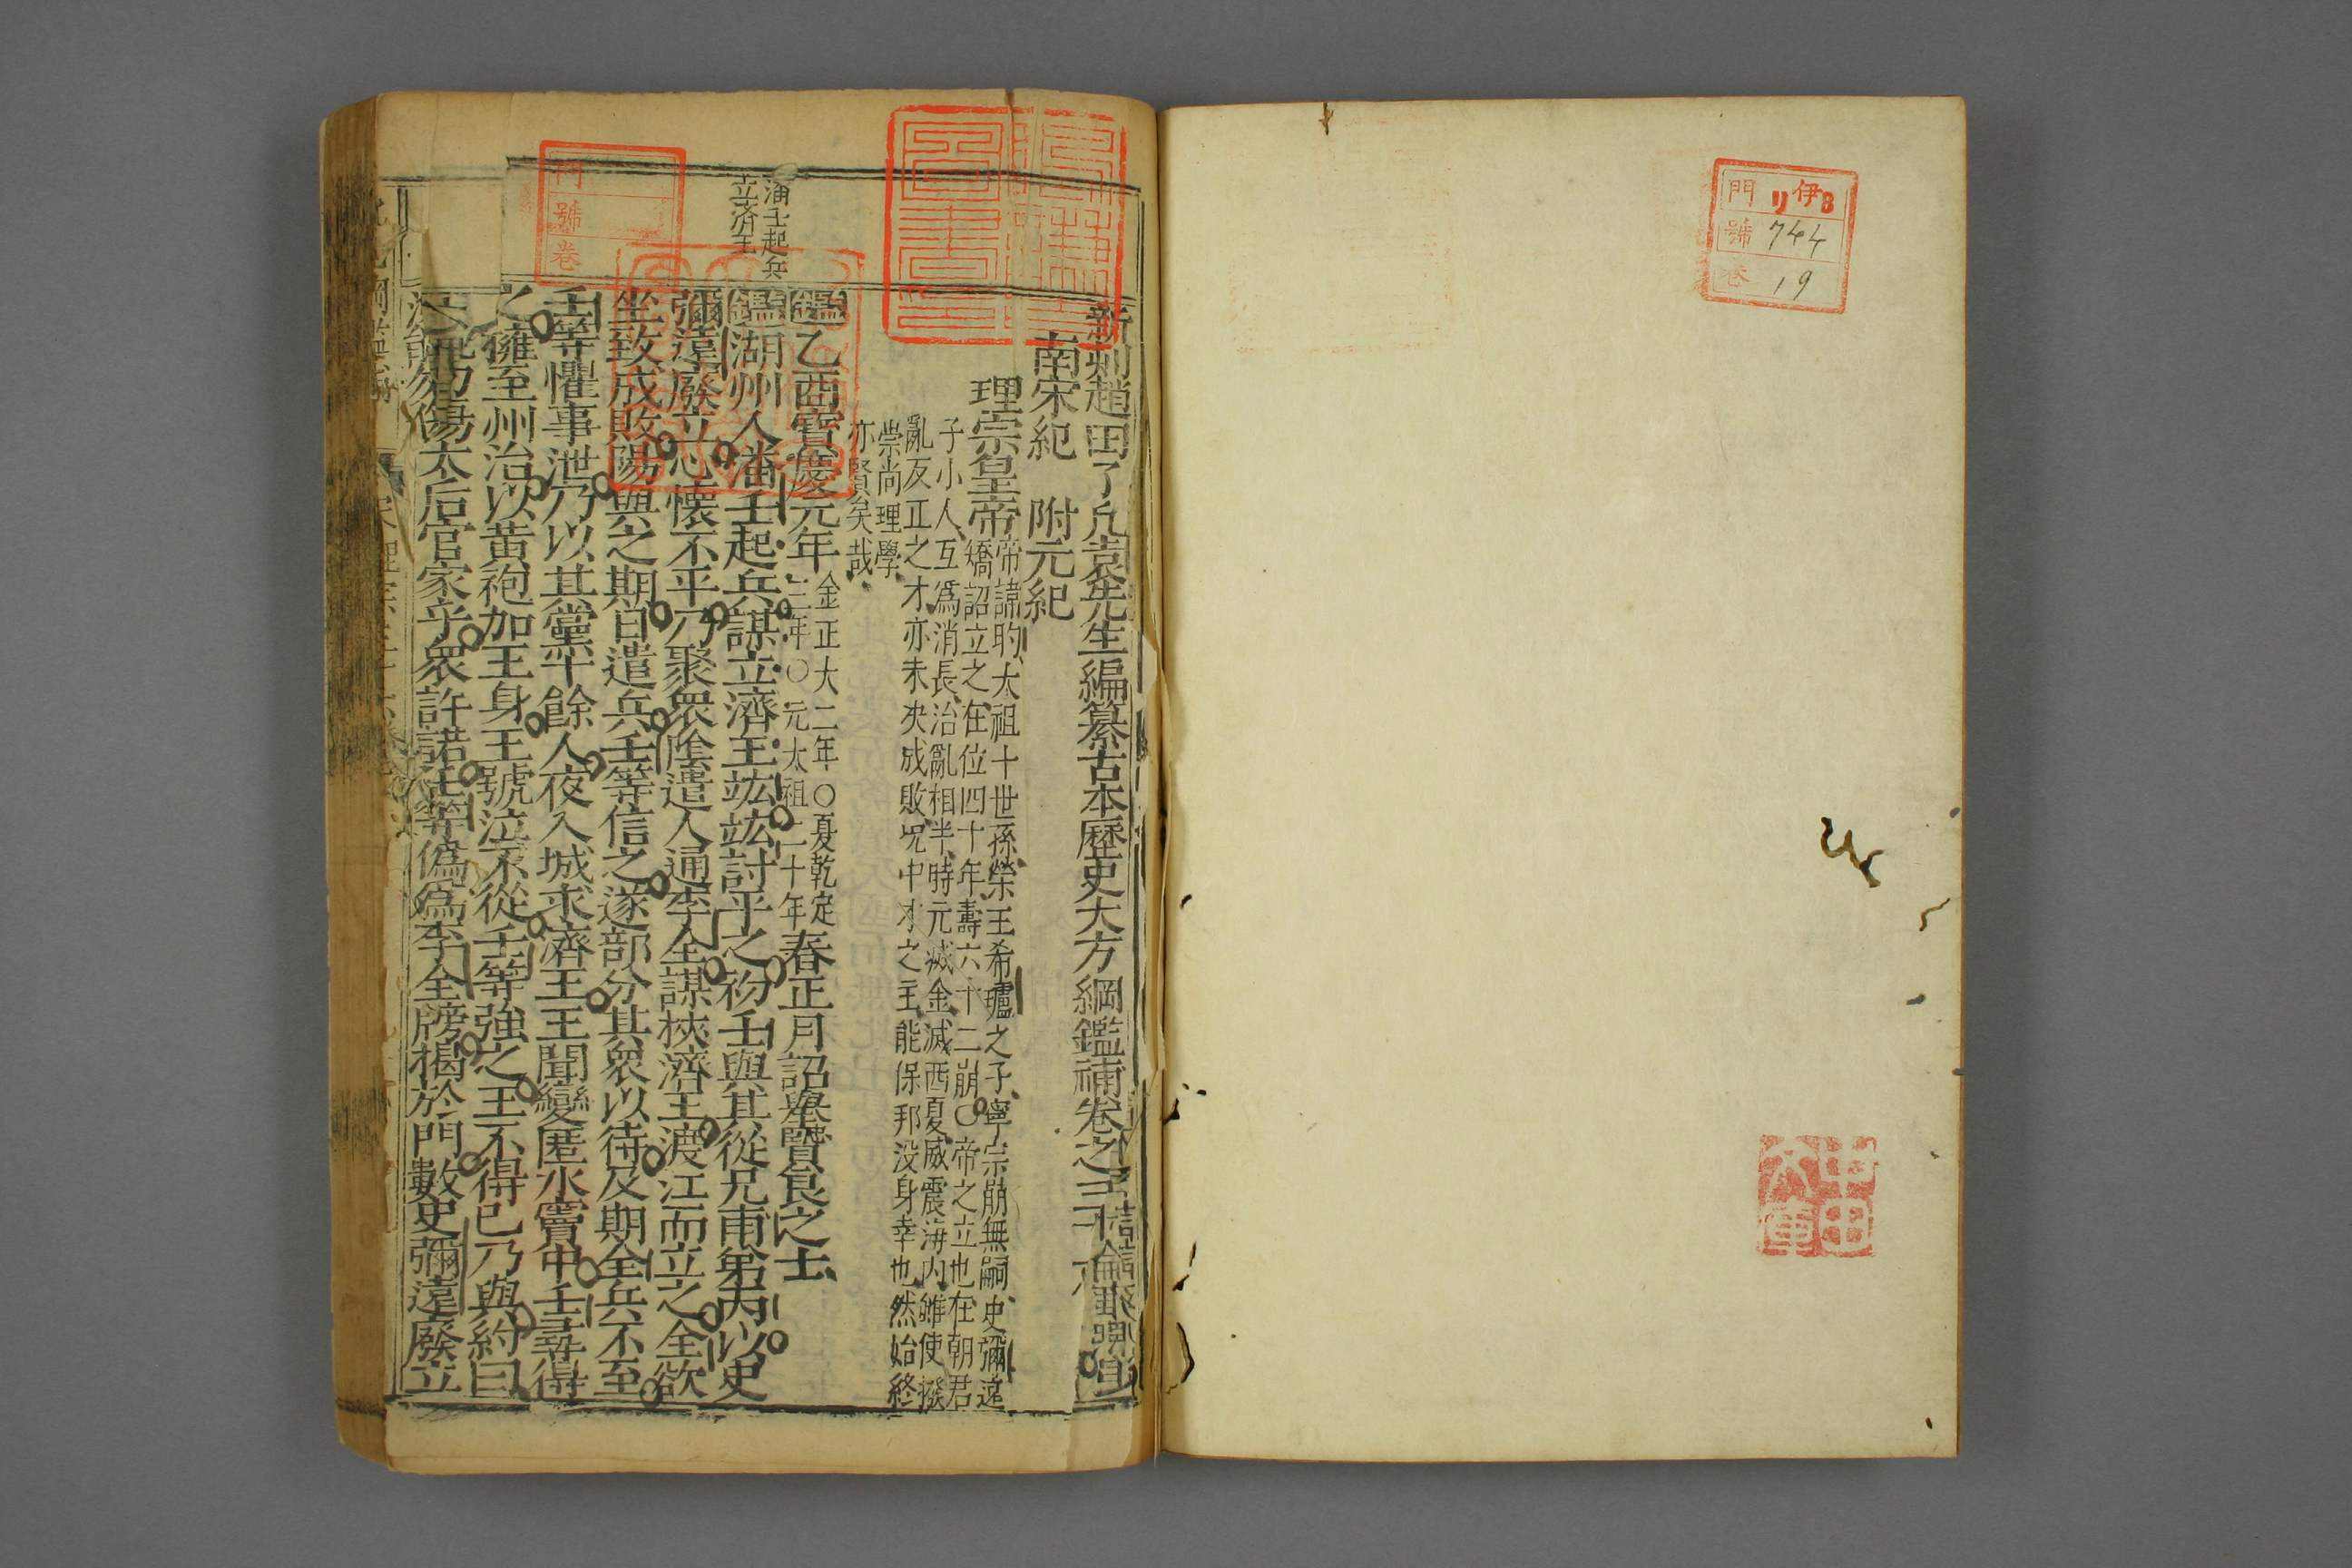 門 リ 伊8
號 744
卷 19
新刻趙田了凡袁先生編纂古本歷史大方綱鑑補卷之三十六
南宋紀 附元紀
理宗皇帝
帝諱昀、太祖十世孫、榮王希瓐之子、寧宗崩無嗣、史彌遠
矯詔立之、在位四十年、壽六十二崩○帝之立也、在朝君
子小人、互爲消長、治亂相半、時元滅金、滅西夏、威震海內、雖使撥
亂反正之才、亦未决成敗、况中才之主、能保邦没身幸也、然始終
崇尚理學、
亦賢矣哉、
潘壬起兵
立濟王
鑑乙酉寶慶元年
金正大二年○夏乾定
三年○元太祖二十年
春正月詔舉賢良之士、
鑑湖州人潘壬起兵謀立濟王竑竑討平之初壬與其從兄甫弟丙以史
彌遠廢立心懷不平乃聚衆陰遣人通李全謀挾濟王渡江而立之全欲
坐致成敗陽與之期日遣兵壬等信之遂部分其衆以待及期全兵不至
壬等懼事泄乃以其黨千餘人夜入城求濟王王聞變匿水竇中壬尋得
之擁至州治以黄袍加王身王號泣不從壬等強之王不得已乃與約曰
汝能勿傷太后官家乎衆許諾壬等僞爲李全牓揭於門數史彌遠廢立